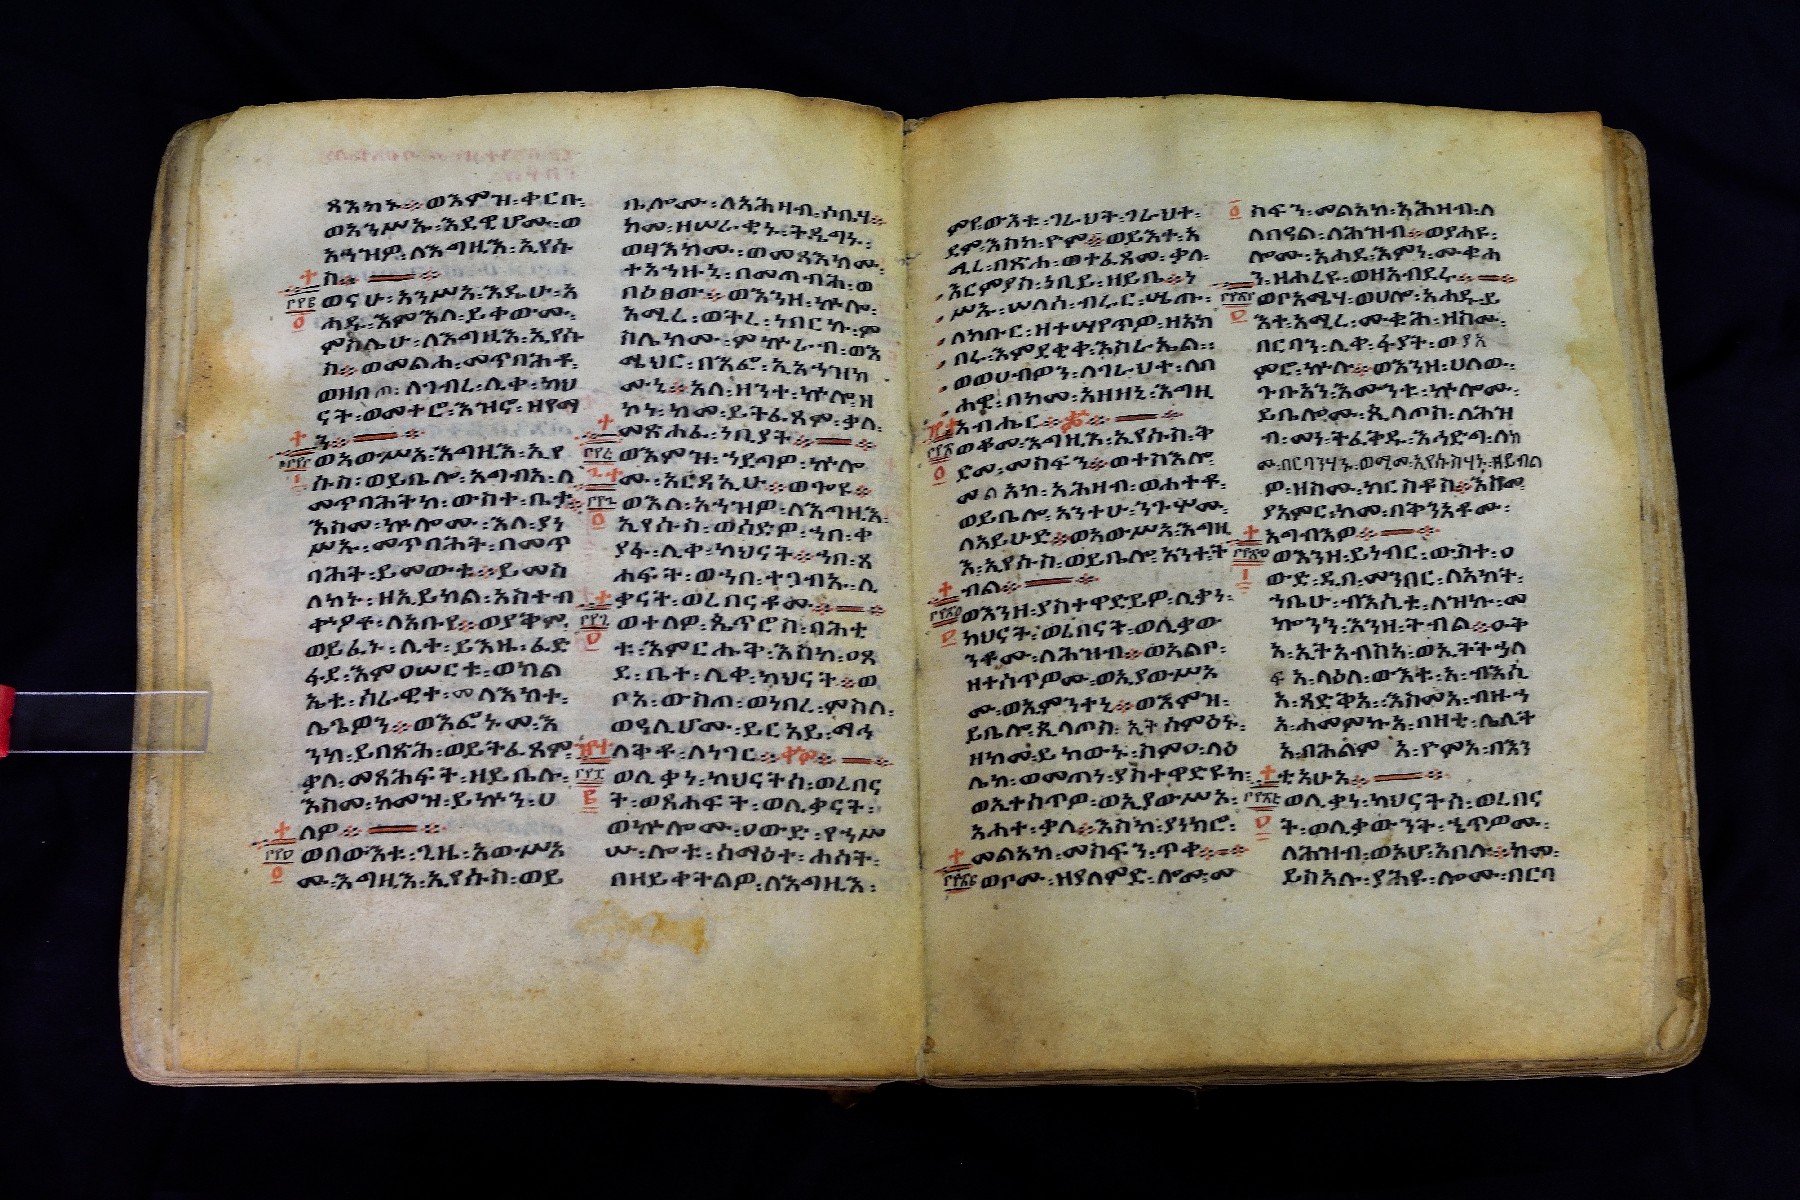 ጻእክኑ ፨ ወእምዝ ፡ ቀርቡ ፡
ወአንሥኡ ፡ እደዊሆሙ ፡ ወ
አኀዝዎ ፡ ለእግዚእ ፡ ኢየሱ
ስ ፨
ወናሁ ፡ አንሥአ ፡ እዴሁ ፡ አ
ሐዱ ፡ እምእለ ፡ ይቀውሙ ፡
ምስሌሁ ፡ ለእግዚእ ፡ ኢየሱ
ስ ፨ ወመልሐ ፡ መጥባሕቶ ፡
ወዘበጦ ፡ ለገብረ ፡ ሊቀ ፡ ካህ
ናት ፡ ወመተሮ ፡ እዝኖ ፡ ዘየማ
ን ፨
ወአውሥአ ፡ እግዚእ ፡ ኢየ
ሱስ ፡ ወይቤሎ ፡ አግብእ ፡ ለ
መጥባሕትከ ፡ ውስተ ፡ ቤታ ፨
እስመ ፡ ኵሎሙ ፡ እለ ፡ ያነ
ሥኡ ፡ መጥባሕት ፡ በመጥ
ባሕት ፡ ይመውቱ ፨ ይመስ
ለከኑ ፡ ዘኢይክል ፡ አስተብ
ቍዖቶ ፡ ለአቡየ ፨ ወያቅም ፡
ወይፈኑ ፡ ሊተ ፡ ይእዜ ፡ ፈድ
ፋደ ፡ እምዐሠርቱ ፡ ወክል
ኤቲ ፡ ሰራዊተ ፡ መላእክተ ፡
ሌጌዎን ፨ ወእፎኑመ ፡ እ
ንከ ፡ ይበጽሕ ፡ ወይትፌጸም ፡
ቃለ ፡ መጻሕፍት ፡ ዘይቤሉ ፡
እስመ ፡ ከመዝ ፡ ይኵን ፡ ሀ
ለዎ ፨
ወበውእቱ ፡ ጊዜ ፡ አውሥአ
ሙ ፡ እግዚእ ፡ ኢየሱስ ፡ ወይ
ቤሎሙ ፡ ለአሕዛብ ፡ ሶቤሃ ፨
ከመ ፡ ዘሠራቂኑ ፡ ትዴግኑ ፡
ወፃእክሙ ፡ ወመጻእክሙ ፡
ተአኀዙኒ ፡ በመጣብሕ ፡ ወ
በዕፀው ፨ ወእንዘ ፡ ኵሎ ፡
አሚረ ፡ ወትረ ፡ ነበርኩ ፡ ም
ስሌክሙ ፡ ምኵራብ ፡ ወእ
ሜህር ፡ በእፎ ፡ ኢአኀዝክ
ሙኒ ፨ አላ ፡ ዝንቱ ፡ ኵሎ ፡ ዘ
ኮነ ፡ ከመ ፡ ይትፈጸም ፡ ቃለ ፡
መጽሐፈ ፡ ነቢያት ፨
ወእምዝ ፡ ኀደግዎ ፡ ኵሎ
ሙ ፡ አርዳኢሁ ፨ ወጐዩ ፨
ወእለ ፡ አኀዝዎ ፡ ለእግዚእ ፡
ኢየሱስ ፡ ወሰድዎ ፡ ኀበ ፡ ቀ
ያፋ ፡ ሊቀ ፡ ካህናት ፨ ኀበ ፡ ጸ
ሐፍት ፡ ወኀበ ፡ ተጋብኡ ፡ ሊ
ቃናት ፡ ወረበናቶሙ ፨
ወተለዎ ፡ ጴጥሮስ ፡ ባሕቲ
ቱ ፡ እምርሑቅ ፡ እስከ ፡ ዐጸ
ደ ፡ ቤተ ፡ ሊቀ ፡ ካህናት ፨ ወ
ቦአ ፡ ውስጠ ፡ ወነበረ ፡ ምስለ ፡
ወዓሊሆሙ ፡ ይርአይ ፡ ማኅ
ለቅቶ ፡ ለነገር ፨
ወሊቃነ ፡ ካህናትሰ ፡ ወረበና
ት ፡ ወጸሐፍት ፡ ወሊቃናት ፡
ወኵሎሙ ፡ ዐውድ ፡ የኀሥ
ሡ ፡ ሎቱ ፡ ስማዕተ ፡ ሐሰት ፡
በዘይቀትልዎ ፡ ለእግዚእ ፡
ምየውእቱ ፡ ገራህት ፡ ገራህተ ፡
ደም ፡ እስከ ፡ ዮም ፨ ወይእተ ፡ አ
ሚረ ፡ በጽሐ ፡ ወተፈጸመ ፡ ቃለ ፡
ኤርምያስ ፡ ነቢይ ፡ ዘይቤ ፨ ነ
ሥኡ ፡ ሠላሰ ፡ ብሩር ፡ ሤጡ ፡
ለክቡር ፡ ዘተሣየጥዎ ፡ ዘአክ
በሩ ፡ እምደቂቀ ፡ እስራኤል ፡
ወወሀብዎን ፡ ለገራህተ ፡ ለብ
ሐዊ ፡ በከመ ፡ አዘዘኒ ፡ እግዚ
አብሔር ፨
ወቆመ ፡ እግዚእ ፡ ኢየሱስ ፡ ቅ
ድመ ፡ መስፍን ፨ ወተስእሎ ፡
መልአከ ፡ አሕዛብ ፡ ወሐተቶ ፡
ወይቤሎ ፡ አንተሁ ፡ ንጉሦሙ ፡
ለአይሁድ ፨ ወአውሥአ ፡ እግዚ
እ ፡ ኢየሱስ ፡ ወይቤሎ ፡ አንተ ፡ ት
ብል ፨
ወእንዘ ፡ ያስተዋድይዎ ፡ ሊቃነ ፡
ካህናት ፡ ወረበናት ፡ ወሊቃው
ንቶሙ ፡ ለሕዝብ ፨ ወአልቦ ፡
ዘተሰጥዎሙ ፡ ወኢያውሥአ
ሙ ፡ ወአምንተኒ ፨ ወእምዝ ፡
ይቤሎ ፡ ጲላጦስ ፡ ኢትሰምዕኑ ፡
ዘከመ ፡ ይከውኑ ፡ ስምዐ ፡ ላዕ
ሌከ ፡ ወመጠነ ፡ ያስተዋድዩከ ፡
ወኢተሰጥዎ ፡ ወኢያውሥአ ፡
አሐተ ፡ ቃለ ፨ እስከ ፡ ያነክሮ ፡
መልአክ ፡ መስፍን ፡ ጥቀ ፨
ወቦሙ ፡ ዘያለምድ ፡ ሎሙ ፡ መ
ስፍን ፡ መልአከ ፡ አሕዛብ ፡ ለ
ለበዓል ፡ ለሕዝብ ፨ ወያሐዩ ፡
ሎሙ ፡ አሐደ ፡ እምን ፡ ሙቁሐ
ን ፡ ዝሐረዩ ፡ ወዘአብደሩ ፨
ወቦአሜሃ ፡ ወሀሎ ፡ አሐዱ ፡ ይ
እተ ፡ አሚረ ፡ ሙቁሕ ፡ ዘስሙ ፡
በርባን ፡ ሊቀ ፡ ፈያት ፡ ወያአ
ምሮ ፡ ኵሉ ፨ ወእንዘ ፡ ሀለው ፡
ጉቡኣን ፡ እሙንቱ ፡ ኵሎሙ ፡
ይቤሎሙ ፡ ጲላጦስ ፡ ለሕዝ
ብ ፡ መነ ፡ ትፈቅዱ ፡ እኅድግ ፡ ለክ
ሙ ፡ በርባንሃኑ ፡ ወሚመ ፡ ኢየሱስሃኑ ፡ ዘይብል
ዎ ፡ ዘስሙ ፡ ክርስቶስ ፨ እስመ
ያአምር ፡ ከመ ፡ በቅንአቶሙ ፡
አግብእዎ ፨
ወእንዘ ፡ ይነብር ፡ ውስተ ፡ ዐ
ውድ ፡ ዲበ ፡ መንበር ፡ ለአከት ፡
ኀቤሁ ፡ ብእሲቱ ፡ ለዝኩ ፡ መ
ኰንን ፡ እንዘ ፡ ትብል ፨ ዑቅ
እ ፡ ኢትአብስእ ፡ ወኢትትኃለ
ፍእ ፡ ላዕለ ፡ ውእት ፡ እ ፡ ብእሲ
እ ፡ ጻድቅእ ፡ እስመእ ፡ ብዙኀ
እ ፡ ሐመምኩእ ፡ በዘቲ ፡ ሌሊት
እ ፡ በሕልም እ ፡ ዮምእ ፡ በእን
ቲአሁእ ፨
ወሊቃነ ፡ ካህናትሰ ፡ ወረበና
ት ፡ ወሊቃውንት ፡ ኄጥዎሙ ፡
ለሕዝብ ፡ ወአሆ ፡ አበሉ ፨ ከመ ፡
ይስአሉ ፡ ያሕዩ ፡ ሎሙ ፡ በርባ